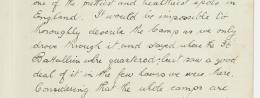 one of the prettiest and healthiest spots in
England. It would be impossible to
thoroughly describe the Camps as we only
drove through it and stayed where the
Battalion where quartered but saw a good
deal of it in the few hours we were there.
Considering that the whole camps are